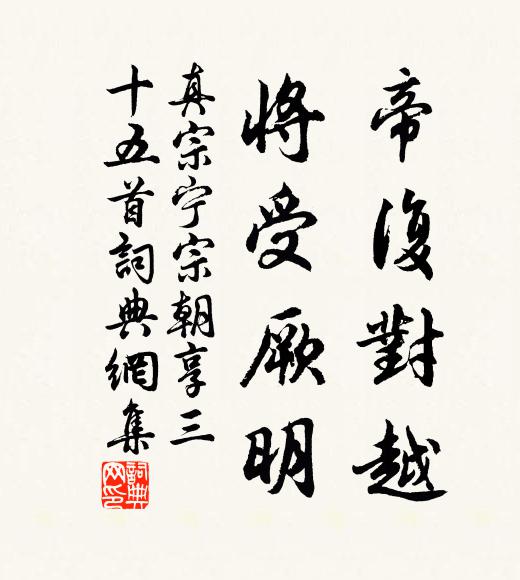 帝復對越
將受厥明
真宗宁宗朝享三
十五首詞典網集
詞典网印